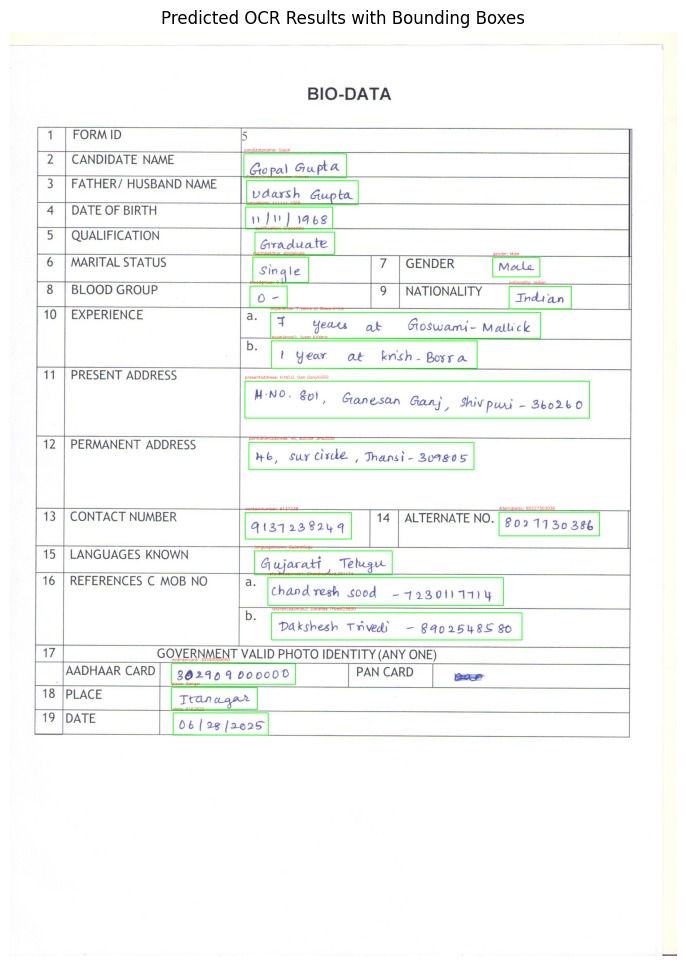 Predicted OCR Results with Bounding Boxes
BIO-DATA
1 FORM ID 5
2 CANDIDATE NAME Gopal Gupta
3 FATHER/ HUSBAND NAME Udarsh Gupta
4 DATE OF BIRTH 11/11/1968
5 QUALIFICATION Graduate
6 MARITAL STATUS Single 7 GENDER Male
8 BLOOD GROUP O- 9 NATIONALITY Indian
10 EXPERIENCE a. 7 years at Goswami-Mallick
b. 1 year at Krish-Borra
11 PRESENT ADDRESS H.NO. 801, Ganesan Ganj, Shivpuri - 360260
12 PERMANENT ADDRESS 46, sur circle, Jhansi - 309805
13 CONTACT NUMBER 9137238249 14 ALTERNATE NO. 8027730386
15 LANGUAGES KNOWN Gujarati, Telugu
16 REFERENCES C MOB NO a. Chandresh sood - 7230117714
b. Dakshesh Trivedi - 8902548580
17 GOVERNMENT VALID PHOTO IDENTITY (ANY ONE)
AADHAAR CARD 302909000000 PAN CARD
18 PLACE Itanagar
19 DATE 06/28/2025